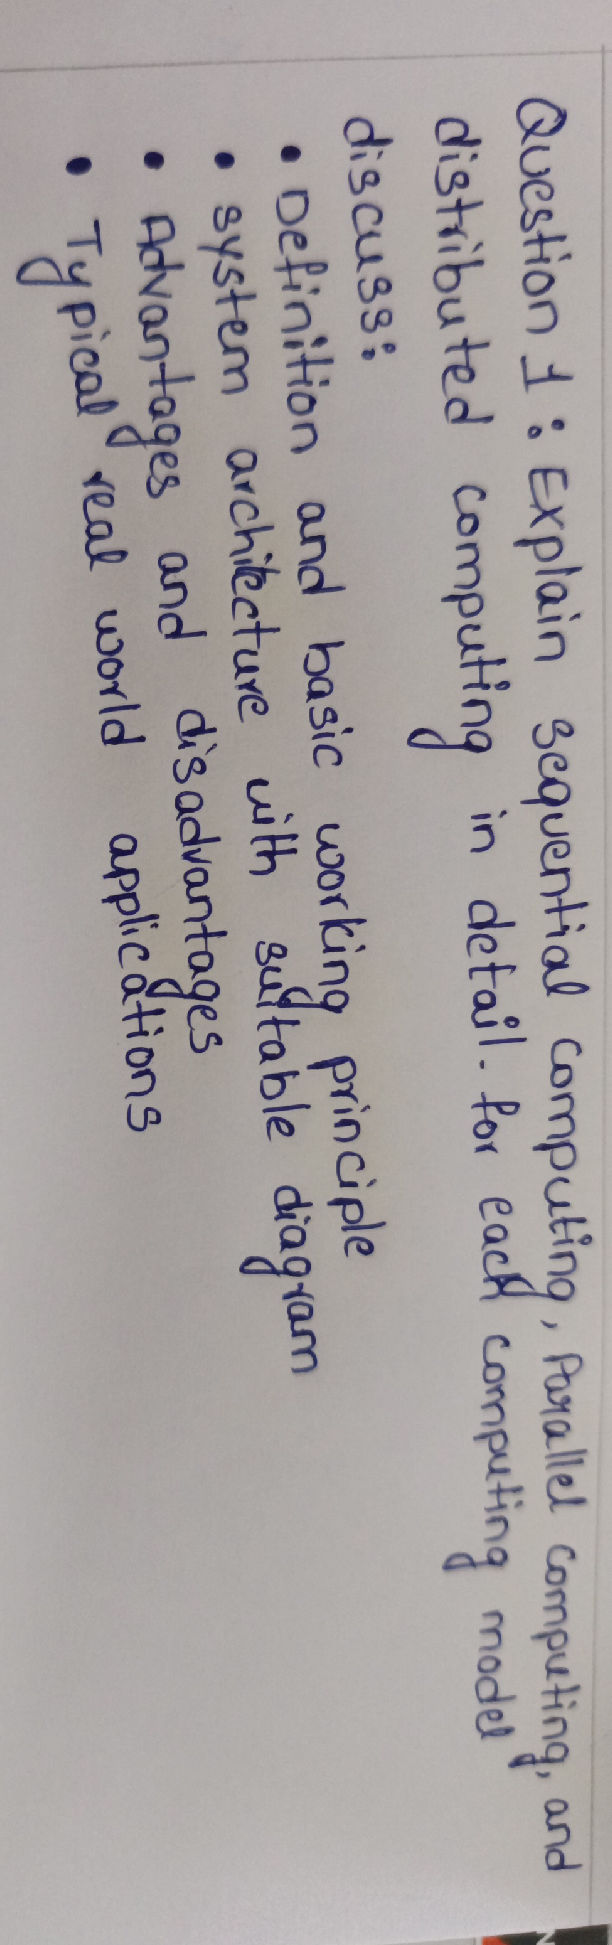 Question 1 : Explain sequential computing, Parallel computing, and
distributed computing in detail. for each computing model
discuss:
• Definition and basic working principle
• system architecture with suitable diagram
• Advantages and disadvantages
• Typical real world applications